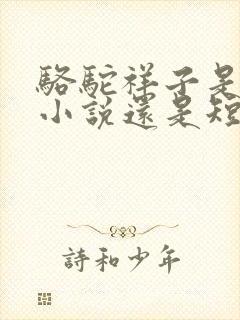 駱駝祥子是
小說還是短
詩和少年